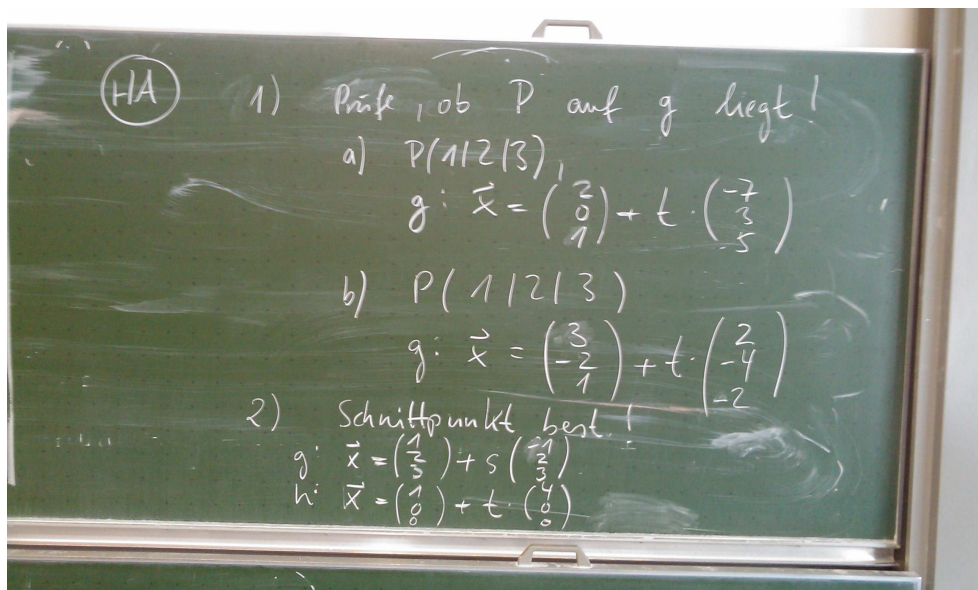 HA 1) Prüfe, ob P auf g liegt!
a) P(1|2|3),
g: x⃗ = (2 0 1) + t · (-7 3 5)
b) P(1|2|3)
g: x⃗ = (3 -2 1) + t · (2 -4 -2)
2) Schnittpunkt best.!
g: x⃗ = (1 2 3) + s (-1 2 3)
h: x⃗ = (1 0 0) + t · (4 0 0)